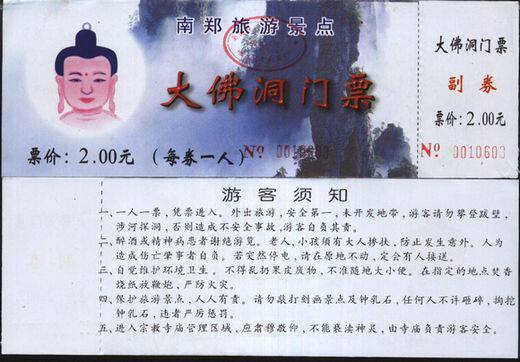 南郑旅游景点
大佛洞门票
票价：2.00元 （每券一人） № 0010603
大佛洞门票
副券
票价：2.00
№ 0010603
游客须知
一、一人一票，凭票进入。外出旅游，安全第一，未开发地带，游客请勿攀登跋壁，
涉河探洞，否则造成不安全事故，游客自负其责。
二、醉酒或精神病患者谢绝游览。老人，小孩须有大人搀扶，防止发生意外。人为
造成伤亡肇事者自负。若突然停电，请在原地不动，定会有人接送。
三、自觉维护环境卫生。不得乱扔果皮废物，不准随地大小便。在指定的地点焚香
烧纸放鞭炮，严防火灾。
四、保护旅游景点，人人有责。请勿敲打刻画景点及钟乳石，任何人不许砸碎，拘挖
钟乳石，违者严厉惩罚。
五、进入宗教寺庙管理区域，应肃穆敬仰，不能亵渎神灵，由寺庙负责游客安全。